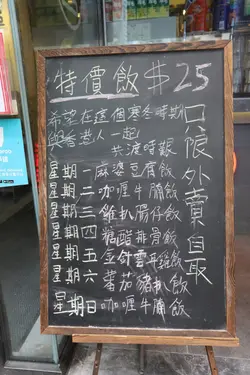 特價飯 $25
希望在這個寒冬時期
與香港人一起
共渡時艱
星期一麻婆豆腐飯
星期二咖喱牛腩飯
星期三雞扒腸仔飯
星期四糖醋排骨飯
星期五金針雲耳雞飯
星期六蕃茄豬扒飯
星期日咖喱牛腩飯
只限外賣自取